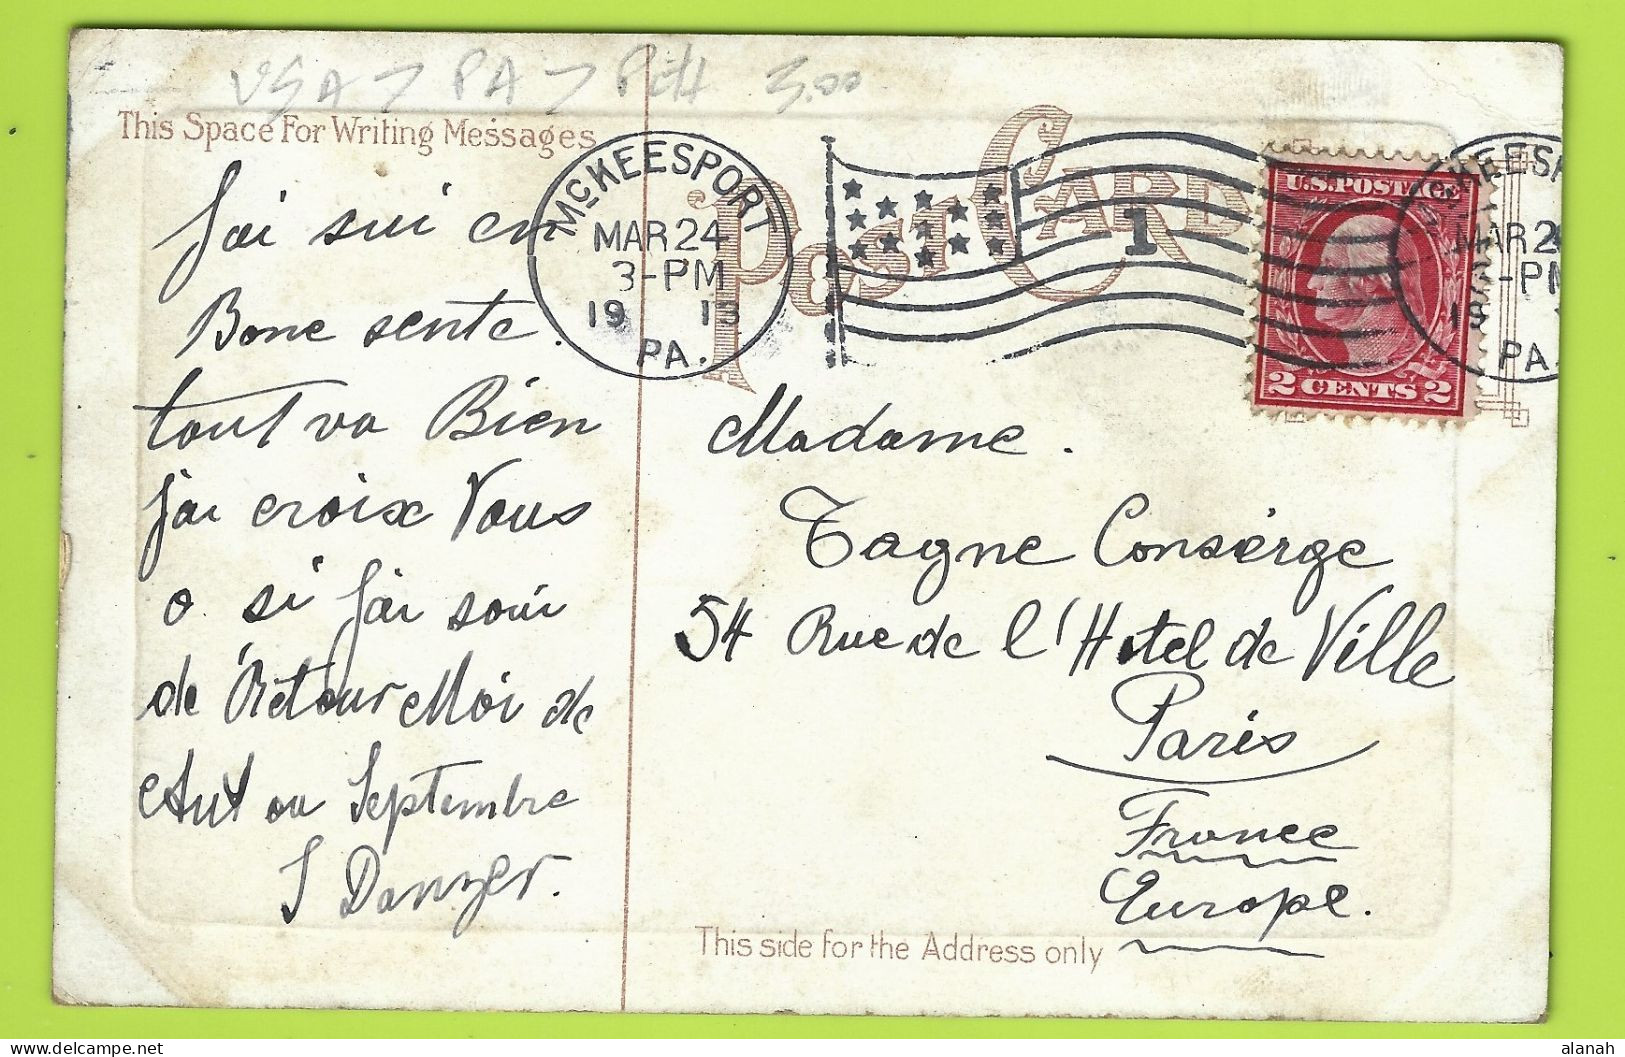 USA > PA > Pitt 3,00
This Space For Writing Messages
J'ai sui en
Bone sente.
tout va Bien
j'ai croix Vous
o. si j'ai soui
de Retour Moi de
Aut ou Septembre
J Danzer.
McKEESPORT
MAR 24
3-PM
1913
PA.
POST CARD
1
U.S. POSTAGE
2 CENTS 2
McKEESP
MAR 24
3-PM
19
PA.
Madame.
Tagne Consièrge
54 Rue de l'Hotel de Ville
Paris
France
Europe.
This side for the Address only
alanah
delcampe.net